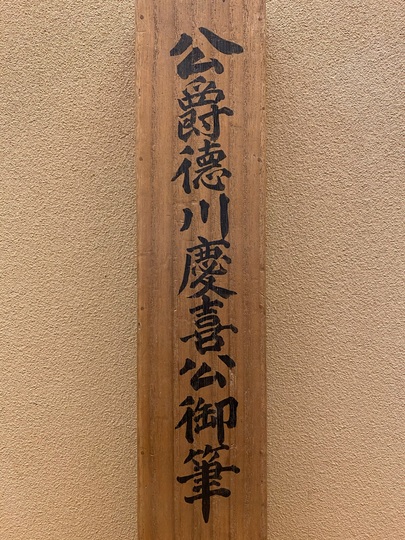 公爵德川慶喜公御筆